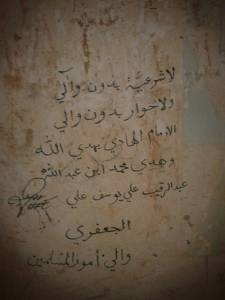 لا شرعيَّة بدون والي
ولا حوار بدون والي
الامام الهادي بهدي الله
وهدي محمد ابن عبد الله
عبد الرقيب علي يوسف علي
الجعفري
والي أمور المسلمين